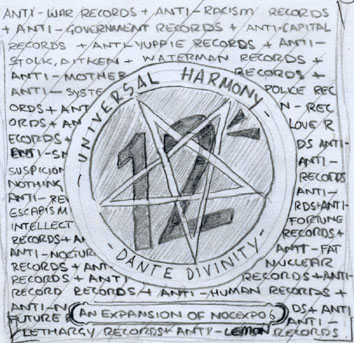 ANTI-WAR RECORDS + ANTI-RACISM RECORDS
+ ANTI-GOVERNMENT RECORDS + ANTI-CAPITAL
RECORDS + ANTI-YUPPIE RECORDS + ANTI-
STOCK, AITKEN - WATERMAN RECORDS +
ANTI-MOTHER RECORDS +
ANTI-SYSTE POLICE REC
ORDS + AN N-REC
ORDS + A LOVE R
ECORDS + DS ANTI-
ANTI-
SUSPICION RECORDS
NOTHING ANTI-
ANTI-RE RDS+ANTI
ESCAPISM FORTUNE
INTELLECT RECORDS+
RECORDS+AN ANTI-FAT
ANTI-NOCTUR NUCLEAR
RECORDS + ANT RECORDS
RECORDS + ANTI ANTI-
RECORD RECORDS + ANTI-HUMAN RECORDS +
ANTI-N DS+ ANTI
FUTURE ANTI-
LETHARGY RECORDS+ ANTI-LEMON RECORDS
- UNIVERSAL HARMONY -
12"
- DANTE DIVINITY -
AN EXPANSION OF NOCEXPO 6